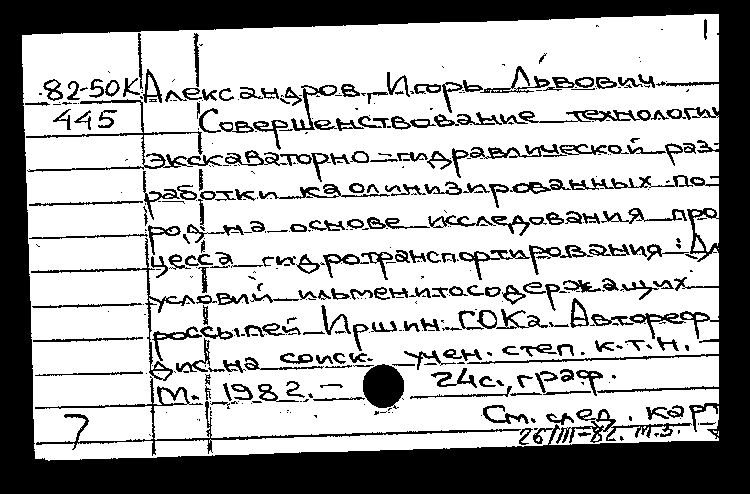 1
82-50К Александров, Игорь Львович
445 Совершенствование технологии
экскаваторно-гидравлической раз-
работки каолинизированных по-
род на основе исследования про
цесса гидротранспортирования: Дл
условий ильменитосодержащих
россыпей Иршин. ГОКа. Автореф
дис на соиск. учен. степ. к.т.н.
М. 1982. - 24с., граф.
См. след. карт
7 26/III-82. М.З.